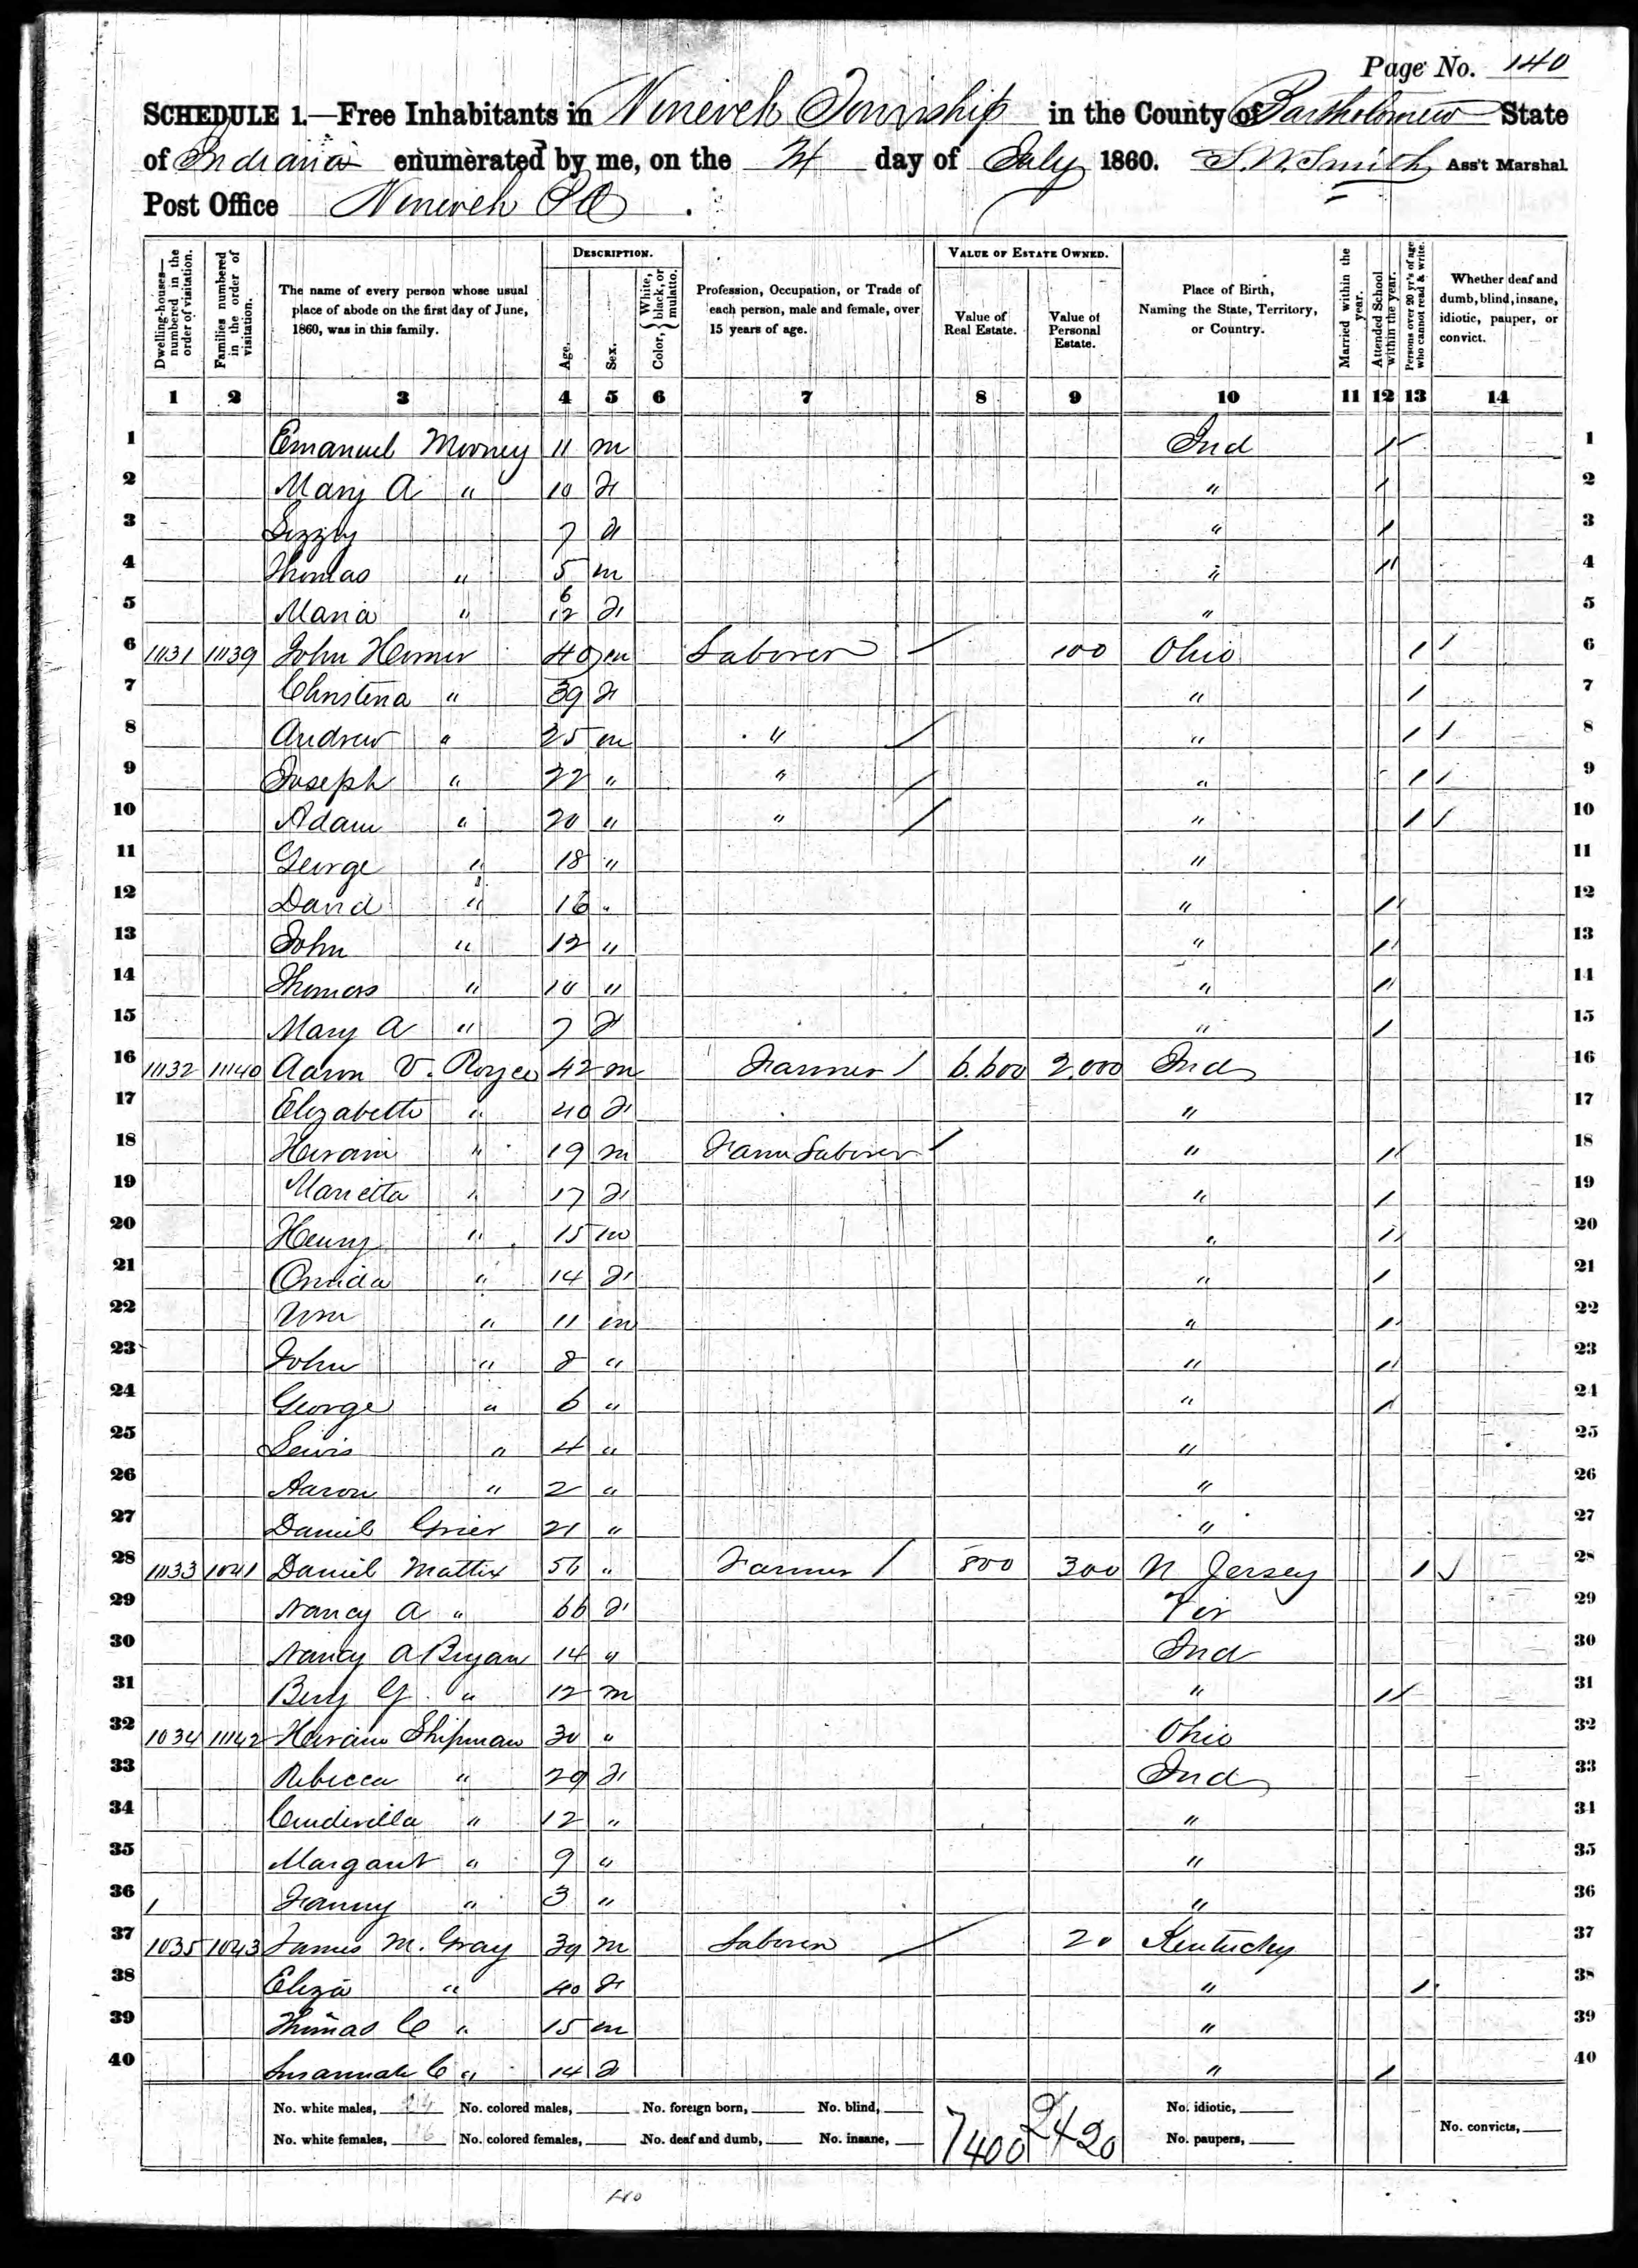 Page No. 140
SCHEDULE 1.—Free Inhabitants in Nineveh Township in the County of Bartholomew State
of Indiana enumerated by me, on the 24 day of July 1860. S. W. Smith Ass't Marshal.
Post Office Nineveh PO
Dwelling-houses—numbered in the order of visitation.
Families numbered in the order of visitation.
The name of every person whose usual place of abode on the first day of June, 1860, was in this family.
DESCRIPTION.
Age.
Sex.
Color, { White, black, or mulatto.
Profession, Occupation, or Trade of each person, male and female, over 15 years of age.
VALUE OF ESTATE OWNED.
Value of Real Estate.
Value of Personal Estate.
Place of Birth, Naming the State, Territory, or Country.
Married within the year.
Attended School within the year.
Persons over 20 yr's of age who cannot read & write.
Whether deaf and dumb, blind, insane, idiotic, pauper, or convict.
1 2 3 4 5 6 7 8 9 10 11 12 13 14
1 Emanuel Mooney 11 m Ind / 1
2 Mary A " 10 f " / 2
3 Lizzy 7 f " / 3
4 Thomas " 5 m " / 4
5 Maria " 6/12 f " 5
6 1131 1139 John Hemer 40 m Laborer 100 Ohio / 6
7 Christena " 39 f " / 7
8 Andrew " 25 m " " / 8
9 Joseph " 22 " " " / 9
10 Adam " 20 " " " / 10
11 George " 18 " " 11
12 David " 16 " " / 12
13 John " 12 " " / 13
14 Thomas " 10 " " / 14
15 Mary A " 7 f " / 15
16 1132 1140 Aaron V. Royce 42 m Farmer 6.600 2.000 Ind 16
17 Elizabeth " 40 f " 17
18 Hiram " 19 m Farm Laborer " / 18
19 Marietta " 17 f " / 19
20 Henry " 15 m " / 20
21 Oneida " 14 f " / 21
22 Wm " 11 m " / 22
23 John " 8 " " / 23
24 George " 6 " " / 24
25 Lewis " 4 " " 25
26 Aaron " 2 " " 26
27 Daniel Grier 21 " " 27
28 1133 1041 Daniel Mattix 56 " Farmer 800 300 N Jersey / 28
29 Nancy A " 66 f Vir 29
30 Nancy A Bryan 14 " Ind 30
31 Benj G. " 12 m " / 31
32 1034 1142 Hiram Shipman 30 " Ohio 32
33 Rebecca " 29 f Ind 33
34 Cinderilla " 12 " " 34
35 Margaret " 9 " " 35
36 Fanny " 3 " " 36
37 1035 1043 James M. Gray 39 m Laborer 20 Kentucky 37
38 Eliza " 40 f " / 38
39 Thomas C " 15 m " 39
40 Susannah C " 14 f " / 40
No. white males, 24 No. colored males, No. foreign born, No. blind, 7400 2420 No. idiotic,
No. white females, 16 No. colored females, No. deaf and dumb, No. insane, No. paupers, No. convicts,
140